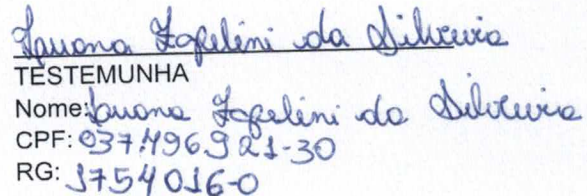 Lauana Zapelini da Silveira
TESTEMUNHA
Nome: Lauana Zapelini da Silveira
CPF: 037.496.921-30
RG: 1754016-0